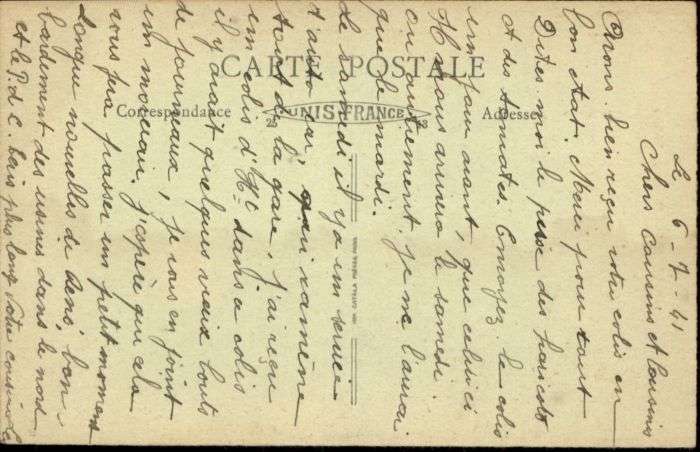 CARTE POSTALE
Correspondance
UNIS-FRANCE
Adresse
Le 6-7-41
Chers Cousins et Cousines
Avons bien reçu votre colis en
bon état. Merci pour tout
Dites moi le prix des haricots
et des tomates. Envoyez le colis
un jour avant, que celui ci
H nous arriva le samedi
ou autrement je ne l'aurai
que le mardi.
Le samedi il y a un service
d'auto qui ramène
tout de la gare. j'ai reçu
un colis d'He dans ce colis
il y avait quelques vieux bouts
de journaux, je vous en joint
un morceau. j'espère que cela
vous fra passer un petit moment
Longue nouvelles de Lens, bom
bardement des usines dans le nord
et le P. de C. Sais plus long Votre cousine